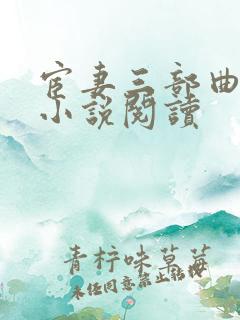 宦妻三部曲
小說閱讀
青柠味草莓
未经同意禁止转载